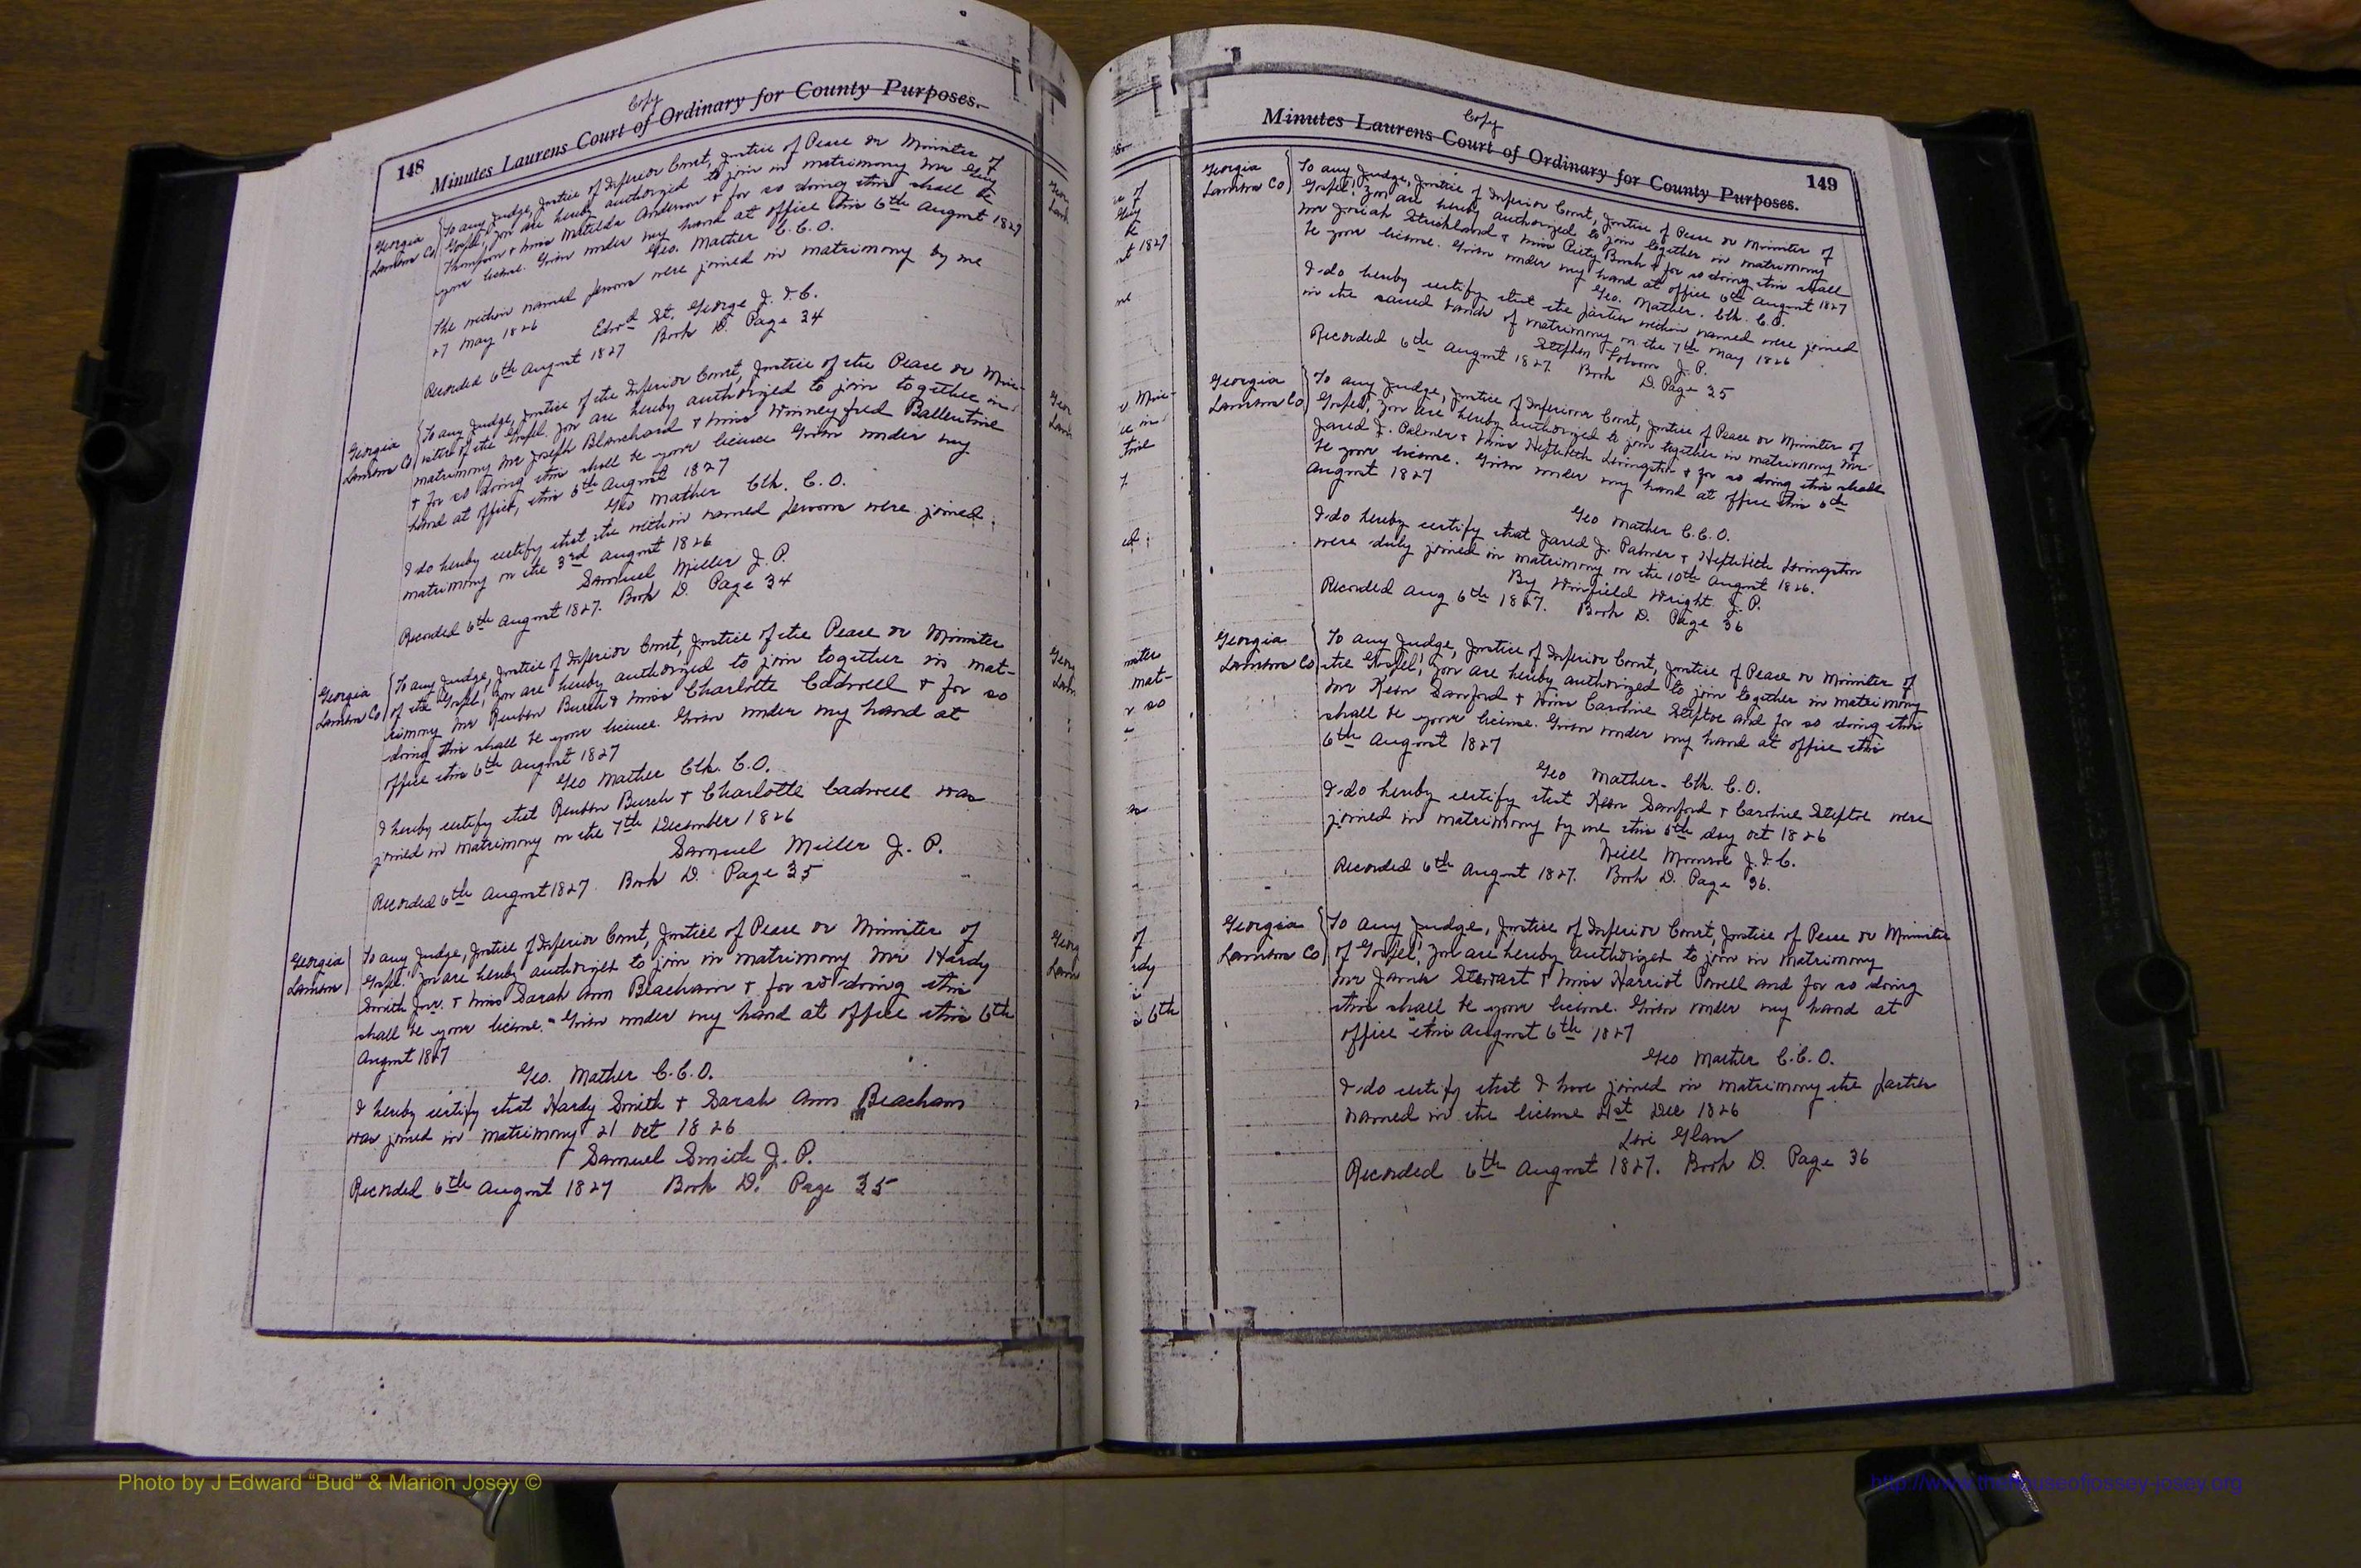 Copy
148 Minutes Laurens Court of Ordinary for County Purposes.
Georgia
Laurens Co
To any Judge, Justice of Inferior Court, Justice of Peace or Minister of
Gospel, you are hereby authorized to join in matrimony Mr Guy
Thompson & Miss Matilda Anderson & for so doing this shall be
your license. Given under my hand at office this 6th August 1827
Geo. Mather C.C.O.
The within named persons were joined in matrimony by me
27 May 1826
Edwd St. George J.I.C.
Recorded 6th August 1827 Book D. Page 34
Georgia
Laurens Co
To any Judge, Justice of the Inferior Court, Justice of the Peace or Min-
ister of the Gospel you are hereby authorized to join together in
matrimony Mr Joseph Blanchard & Miss Winneyfred Ballentine
& for so doing this shall be your license Given under my
hand at office, this 6th August 1827
Geo Mather Clk. C.O.
I do hereby certify that the within named persons were joined
matrimony on the 3rd August 1826
Samuel Miller J.P.
Recorded 6th August 1827. Book D. Page 34
Georgia
Laurens Co
To any Judge, Justice of Inferior Court, Justice of the Peace or Minister
of the Gospel, you are hereby authorized to join together in mat-
rimony Mr Reuben Burch & Miss Charlotte Cadwell & for so
doing this shall be your license. Given under my hand at
office this 6th August 1827
Geo Mather Clk. C.O.
I hereby certify that Reuben Burch & Charlotte Cadwell was
joined in matrimony on the 7th December 1826
Samuel Miller J.P.
Recorded 6th August 1827 Book D. Page 35
Georgia
Laurens
To any Judge, Justice of Inferior Court, Justice of Peace or Minister of
Gospel. You are hereby authorized to join in matrimony Mr Hardy
Smith Jnr. & Miss Sarah Ann Beacham & for so doing this
shall be your license. Given under my hand at office this 6th
August 1827
Geo. Mather C.C.O.
I hereby certify that Hardy Smith & Sarah Ann Beacham
was joined in matrimony 21 Oct 1826
Samuel Smith J.P.
Recorded 6th August 1827 Book D. Page 35
Copy
Minutes Laurens Court of Ordinary for County Purposes. 149
Georgia
Laurens Co
To any Judge, Justice of Inferior Court, Justice of Peace or Minister of
Gospel, you are hereby authorized to join together in matrimony
Mr Josiah Strickland & Miss Piety Bush & for so doing this shall
be your license. Given under my hand at office 6th August 1827
Geo. Mather. Clk. C.O.
I do hereby certify that the parties within named were joined
in the sacred bands of matrimony on the 7th May 1826
Stephen Folsom J.P.
Recorded 6th August 1827. Book D. Page 35
Georgia
Laurens Co
To any Judge, Justice of Inferior Court, Justice of Peace or Minister of
Gospel, you are hereby authorized to join together in matrimony Mr
Jared J. Palmer & Miss Hepthibeth Livingston & for so doing this shall
be your license. Given under my hand at office this 6th
August 1827
Geo Mather C.C.O.
I do hereby certify that Jared J. Palmer & Hepthibeth Livingston
were duly joined in matrimony on the 10th August 1826.
By Winfield Wright J.P.
Recorded Aug 6th 1827. Book D. Page 36
Georgia
Laurens Co
To any Judge, Justice of Inferior Court, Justice of Peace or Minister of
the Gospel, you are hereby authorized to join together in matrimony
Mr Keen Sanford & Miss Caroline Steptoe and for so doing this
shall be your license. Given under my hand at office this
6th August 1827
Geo Mather. Clk. C.O.
I do hereby certify that Keen Sanford & Caroline Steptoe were
joined in matrimony by me this 5th day Oct 1826
Neill Monroe J.I.C.
Recorded 6th August 1827. Book D. Page 36.
Georgia
Laurens Co
To any Judge, Justice of Inferior Court, Justice of Peace or Minister
of Gospel, you are hereby authorized to join in matrimony
Mr James Stewart & Miss Harriot Powell and for so doing
this shall be your license. Given under my hand at
office this August 6th 1827
Geo Mather C.C.O.
I do certify that I have joined in matrimony the parties
named in the license 21st Dec 1826
Recorded 6th August 1827. Book D. Page 36
Photo by J Edward “Bud” & Marion Josey ©
http://www.thehouseofjossey-josey.org